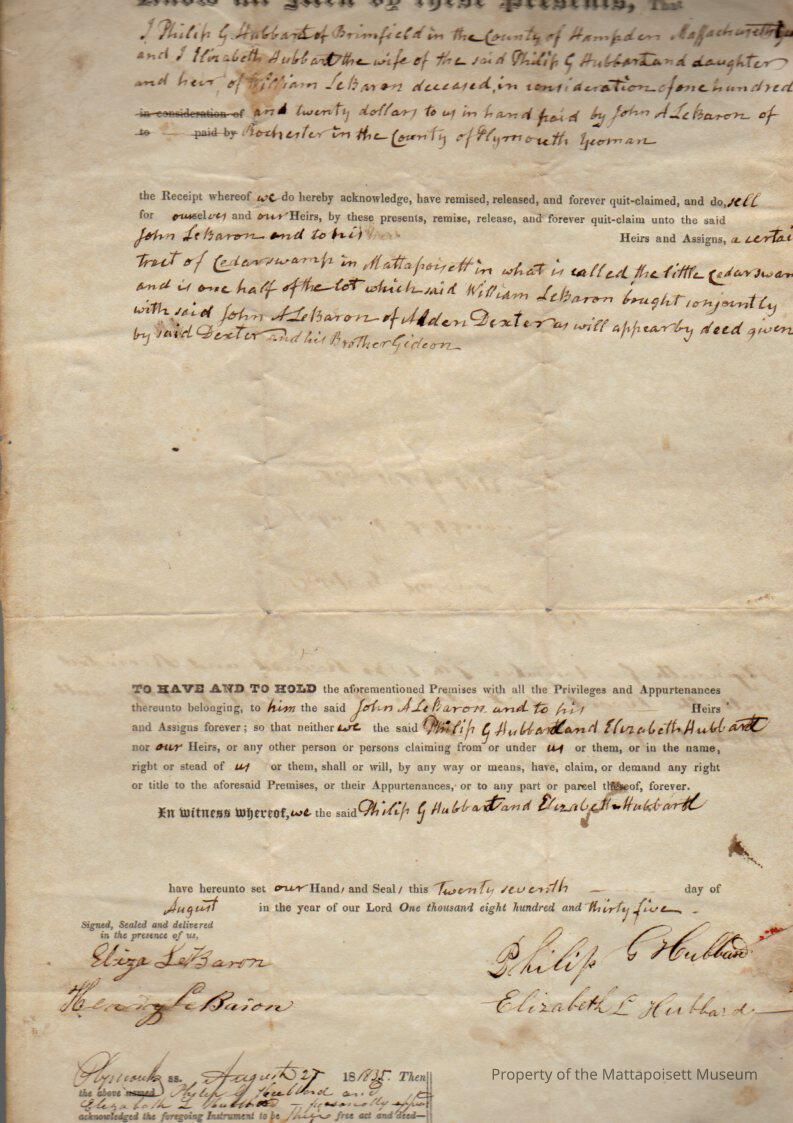 Know all Men by these Presents, That
I Philip G Hubbart of Brimfield in the County of Hampden Massachusetts
and I Elizabeth Hubbart the wife of the said Philip G Hubbart and daughter
and heir of William LeBaron deceased, in consideration of one hundred
in consideration of and twenty dollars to us in hand paid by John A LeBaron of
to paid by Rochester in the County of Plymouth Yeoman
the Receipt whereof we do hereby acknowledge, have remised, released, and forever quit-claimed, and do, sell
for ourselves and our Heirs, by these presents, remise, release, and forever quit-claim unto the said
John LeBaron and to his Heirs and Assigns, a certai
tract of Cedar swamp in Mattapoisett in what is called the little Cedar swam
and is one half of the lot which said William LeBaron bought conjointly
with said John A LeBaron of Alden Dexter as will appear by deed given
by said Dexter and his Brother Gideon
TO HAVE AND TO HOLD the aforementioned Premises with all the Privileges and Appurtenances
thereunto belonging, to him the said John A LeBaron and to his Heirs
and Assigns forever; so that neither we the said Philip G Hubbard and Elizabeth Hubbard
nor our Heirs, or any other person or persons claiming from or under us or them, or in the name,
right or stead of us or them, shall or will, by any way or means, have, claim, or demand any right
or title to the aforesaid Premises, or their Appurtenances, or to any part or parcel thereof, forever.
In witness whereof, we the said Philip G Hubbart and Elizabeth Hubbard
have hereunto set our Hands and Seals this Twenty seventh day of
August in the year of our Lord One thousand eight hundred and thirty five
Signed, Sealed and delivered
in the presence of us,
Eliza LeBaron
Philip G Hubbard
Henry LeBaron
Elizabeth L Hubbard
Plymouth ss. August 27 1835. Then
the above named Philip G Hubbard and
Elizabeth L Hubbard personally appear
acknowledged the foregoing Instrument to be their free act and deed—
Property of the Mattapoisett Museum